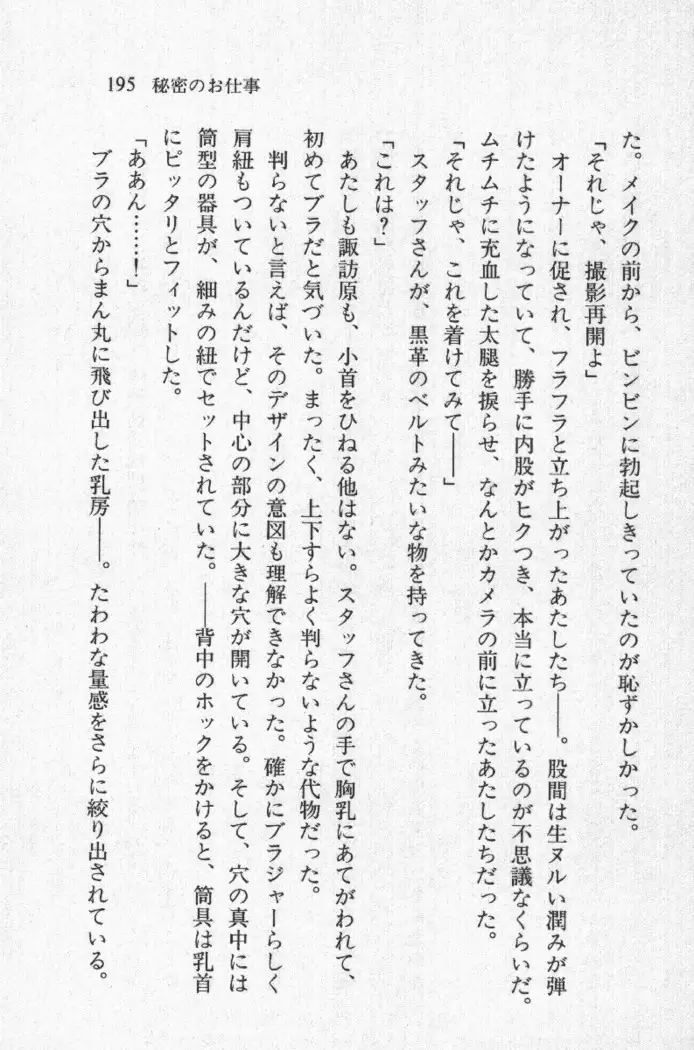 195 秘密のお仕事
た。メイクの前から、ビンビンに勃起しきっていたのが恥ずかしかった。
「それじゃ、撮影再開よ」
オーナーに促され、フラフラと立ち上がったあたしたち――。股間は生ヌルい潤みが弾
けたようになっていて、勝手に内股がヒクつき、本当に立っているのが不思議なくらいだ。
ムチムチに充血した太腿を捩らせ、なんとかカメラの前に立ったあたしたちだった。
「それじゃ、これを着けてみて――」
スタッフさんが、黒革のベルトみたいな物を持ってきた。
「これは?」
あたしも諏訪原も、小首をひねる他はない。スタッフさんの手で胸乳にあてがわれて、
初めてブラだと気づいた。まったく、上下すらよく判らないような代物だった。
判らないと言えば、そのデザインの意図も理解できなかった。確かにブラジャーらしく
肩紐もついているんだけど、中心の部分に大きな穴が開いている。そして、穴の真中には
筒型の器具が、細みの紐でセットされていた。――背中のホックをかけると、筒具は乳首
にピッタリとフィットした。
「ああん……!」
ブラの穴からまん丸に飛び出した乳房――。たわわな量感をさらに絞り出されている。